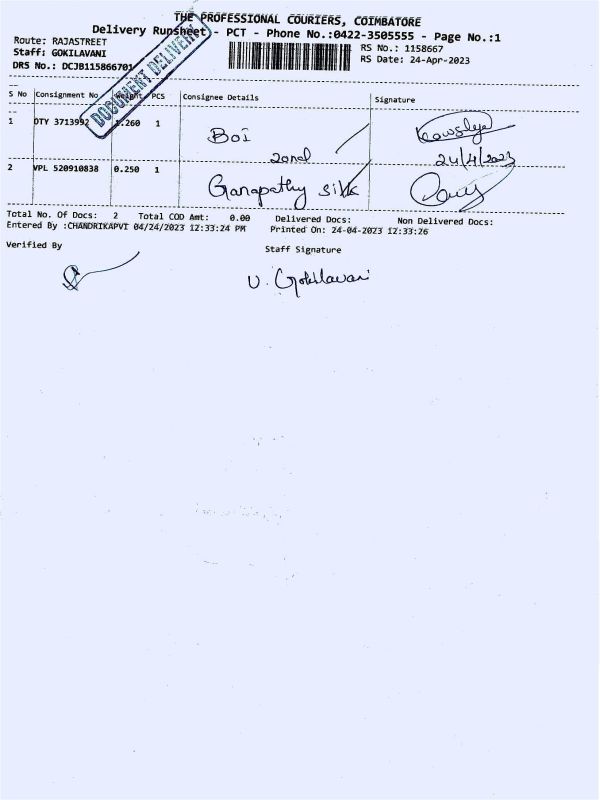 THE PROFESSIONAL COURIERS, COIMBATORE
Delivery Runsheet - PCT - Phone No.:0422-3505555 - Page No.:1
Route: RAJASTREET
RS No.: 1158667
Staff: GOKILAVANI
RS Date: 24-Apr-2023
DRS No.: DCJB115866701
DOCUMENT DELIVERY
S No Consignment No Weight PCS Consignee Details Signature
1 DTY 3713992 1.260 1 BOI Kowslya
zonal 24/4/2023
2 VPL 520910838 0.250 1 Ganapathy silk
Total No. Of Docs: 2 Total COD Amt: 0.00 Delivered Docs: Non Delivered Docs:
Entered By :CHANDRIKAPVT 04/24/2023 12:33:24 PM Printed On: 24-04-2023 12:33:26
Verified By Staff Signature
V. Gokilavani